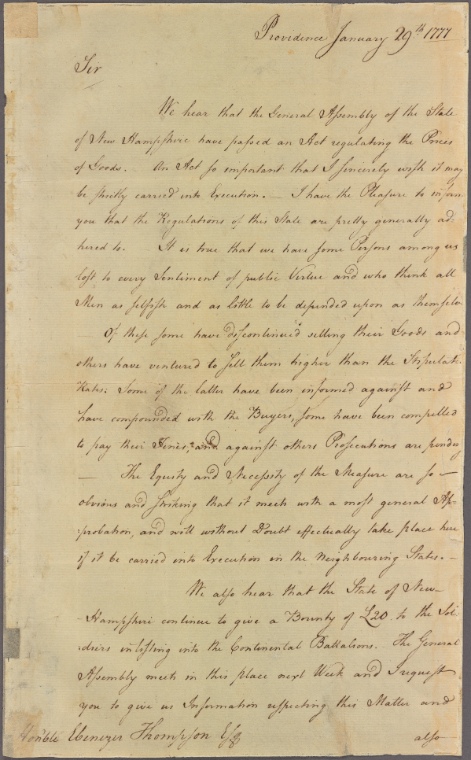 Providence January 29th 1777
Sir
We hear that the General Assembly of the State
of New Hampshire have passed an Act regulating the Prices
of Goods. An Act so important that I sincerely wish it may
be strictly carried into Execution. — I have the Pleasure to inform
you that the Regulations of this State are pretty generally ad-
hered to. It is true that we have some Persons among us
lost to every Sentiment of public Virtue and who think all
Men as selfish and as little to be depended upon as themselves
Of these some have discontinued selling their Goods and
others have ventured to sell them higher than the Stipulated
Rates: Some of the latter have been informed against and
have compounded with the Buyers, some have been compelled
to pay their Fines, and against others Prosecutions are pending
— The Equity and Necessity of the Measure are so —
obvious and striking that it meets with a most general Ap-
probation, and will without Doubt effectually take place here
if it be carried into Execution in the Neighbouring States. —
We also hear that the State of New-
Hampshire continue to give a Bounty of £20 to the Sol-
diers inlisting into the Continental Battalions. The General
Assembly meets in this place next Week and I request
you to give us Information respecting this Matter and
Honble Ebenezer Thompson Esq
also —